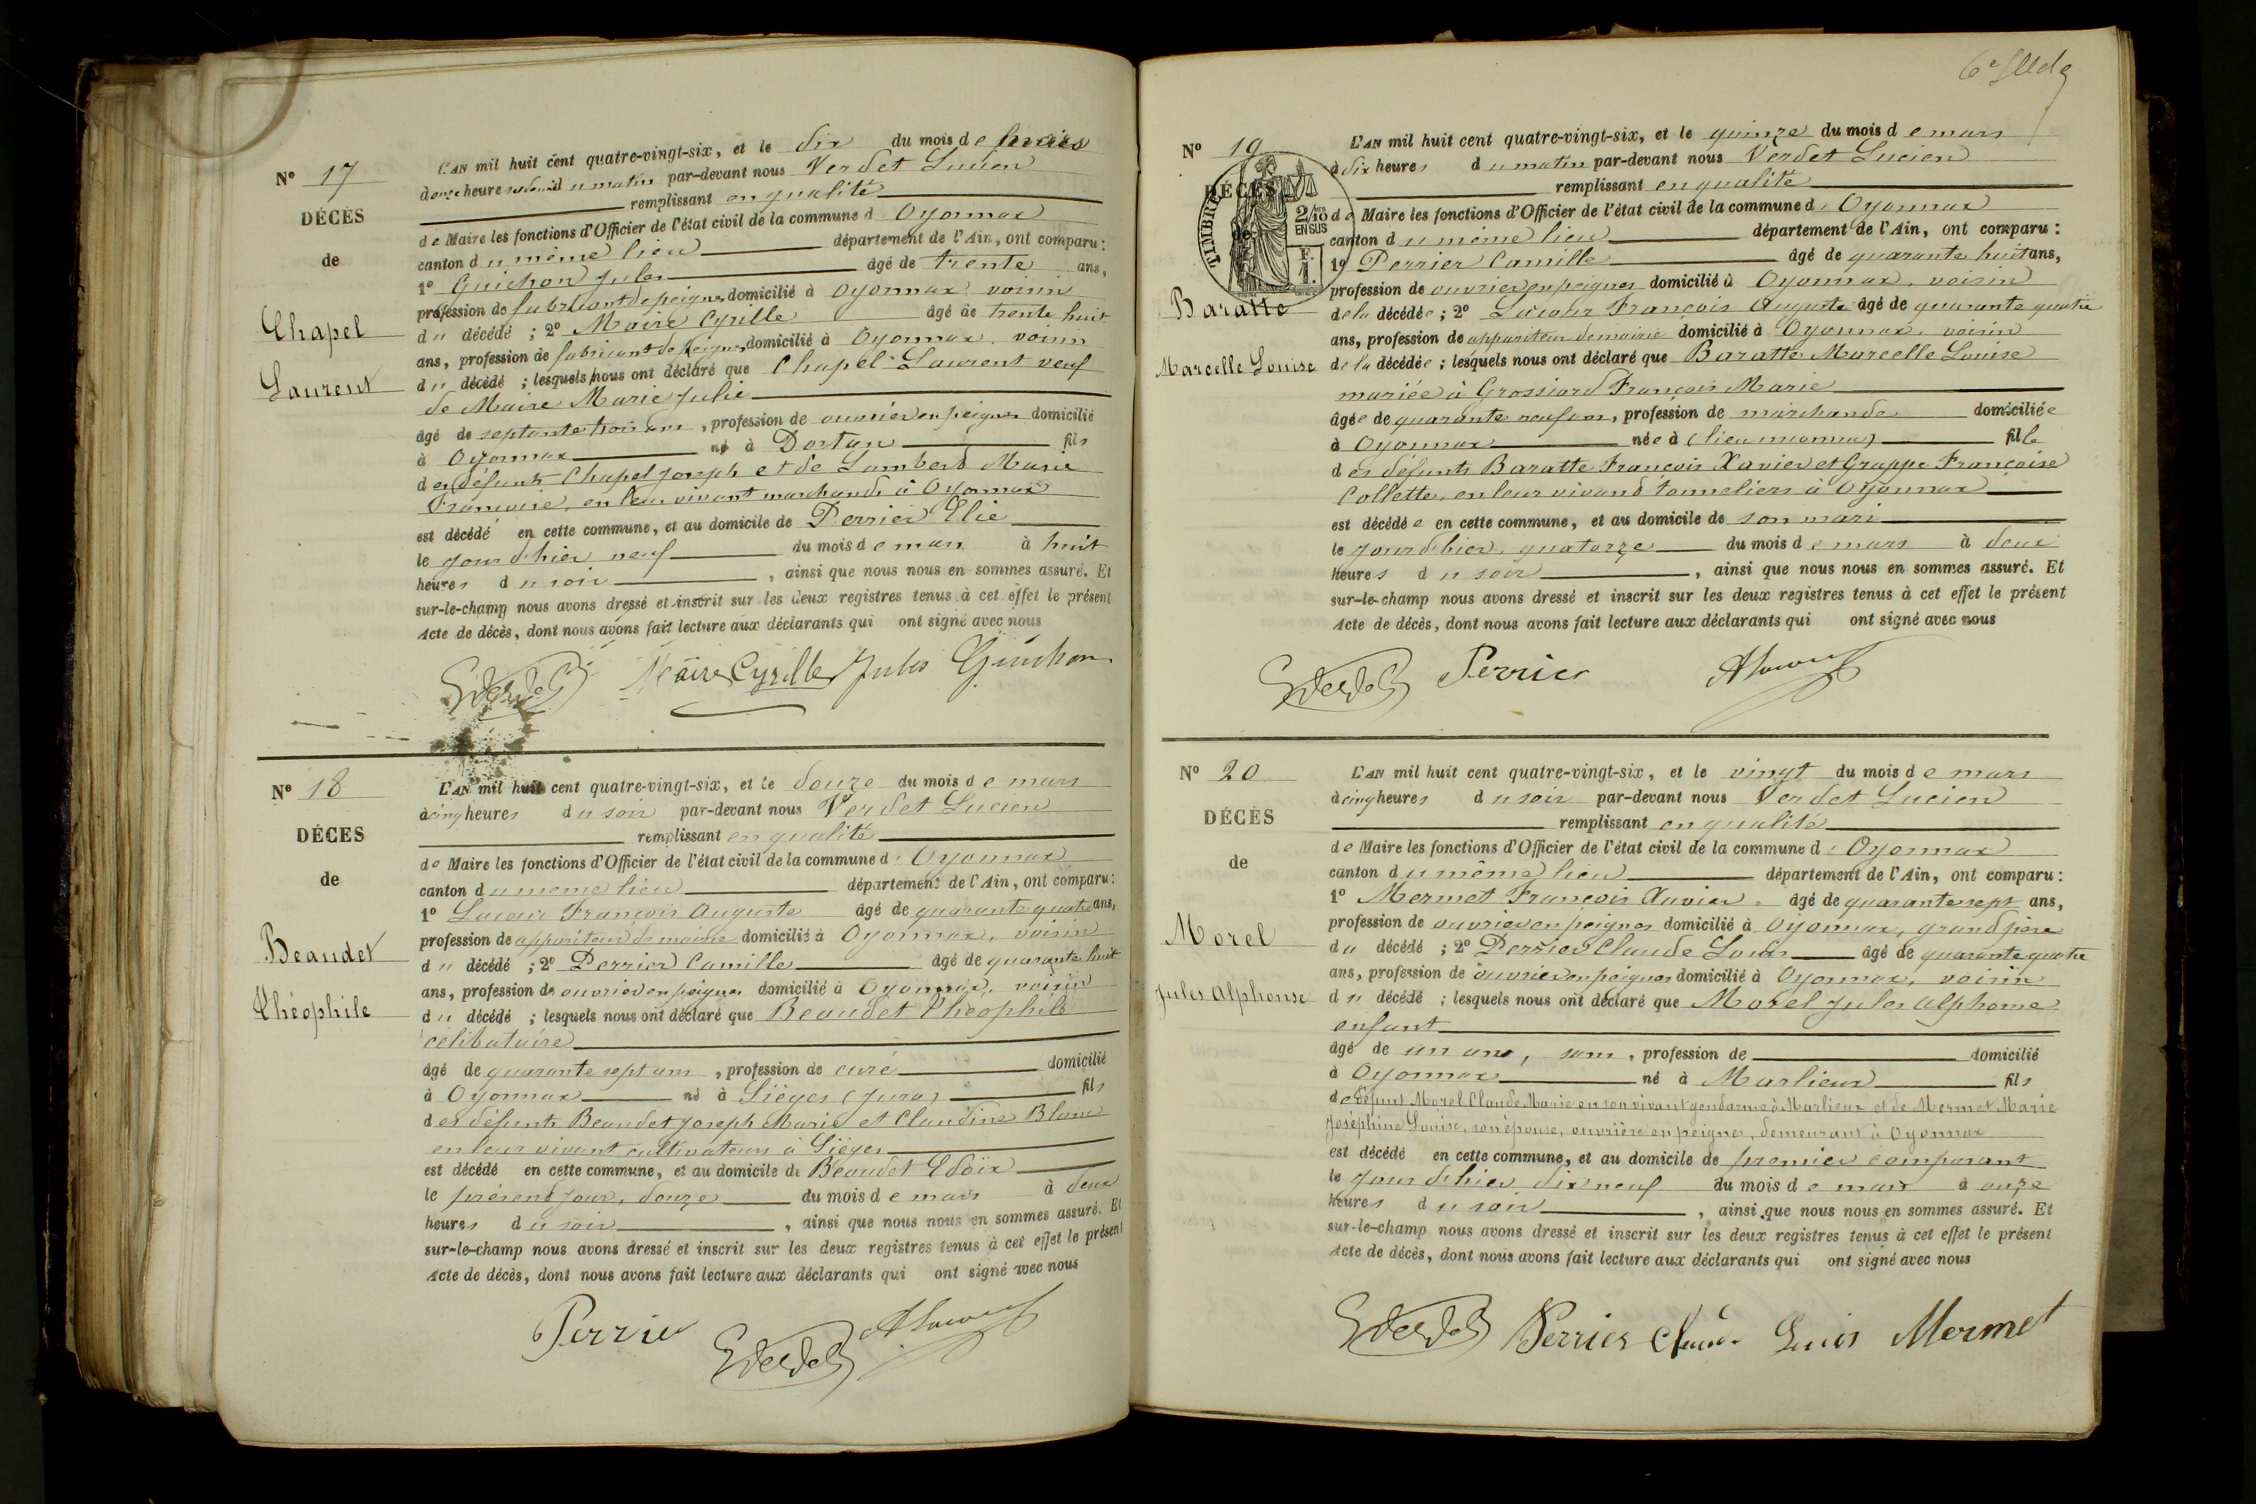 Nº 17
DÉCÈS
de
Chapel
Laurent
L'AN mil huit cent quatre-vingt-six, et le dix du mois de mars
à onze heures du matin par-devant nous Verdet Lucien
remplissant en qualité
de Maire les fonctions d'Officier de l'état civil de la commune d'Oyonnax
canton du même lieu département de l'Ain, ont comparu :
1º Guichon Jules âgé de trente ans,
profession de fabricant de peignes domicilié à Oyonnax, voisin
du décédé ; 2º Maire Cyrille âgé de trente huit
ans, profession de fabricant de peignes domicilié à Oyonnax, voisin
du décédé ; lesquels nous ont déclaré que Chapel Laurent veuf
de Maire Marie Julie
âgé de septante trois ans, profession de ouvrier en peignes domicilié
à Oyonnax né à Dortan fils
des défunts Chapel Joseph et de Lambert Marie
Françoise, en leur vivant marchands à Oyonnax
est décédé en cette commune, et au domicile de Perrier Elie
le jour d'hier neuf du mois de mars à huit
heures du soir, ainsi que nous nous en sommes assuré. Et
sur-le-champ nous avons dressé et inscrit sur les deux registres tenus à cet effet le présent
Acte de décès, dont nous avons fait lecture aux déclarants qui ont signé avec nous
Verdet Maire Cyrille Jules Guichon
Nº 18
DÉCES
de
Beaudet
Théophile
L'AN mil huit cent quatre-vingt-six, et le douze du mois de mars
à cinq heures du soir par-devant nous Verdet Lucien
remplissant en qualité
de Maire les fonctions d'Officier de l'état civil de la commune d'Oyonnax
canton du même lieu département de l'Ain, ont comparu :
1º Lacour François Auguste âgé de quarante quatre ans,
profession de appariteur de mairie domicilié à Oyonnax, voisin
du décédé ; 2º Perrier Camille âgé de quarante huit
ans, profession de ouvrier en peignes domicilié à Oyonnax, voisin
du décédé ; lesquels nous ont déclaré que Beaudet Théophile
célibataire
âgé de quarante sept ans, profession de curé domicilié
à Oyonnax né à Siéges (Jura) fils
des défunts Beaudet Joseph Marie et Claudine Blanc
en leur vivant cultivateurs à Siéges
est décédé en cette commune, et au domicile de Beaudet Eloïx
le présent jour, douze du mois de mars à deux
heures du soir, ainsi que nous nous en sommes assuré. Et
sur-le-champ nous avons dressé et inscrit sur les deux registres tenus à cet effet le présent
Acte de décès, dont nous avons fait lecture aux déclarants qui ont signé avec nous
Perrier Verdet ALacour
6e
Nº 19
DÉCÈS
de
TIMBRE
2/10 EN SUS
F. 1.
Baratte
Marcelle Louise
L'AN mil huit cent quatre-vingt-six, et le quinze du mois de mars
à dix heures du matin par-devant nous Verdet Lucien
remplissant en qualité
de Maire les fonctions d'Officier de l'état civil de la commune d'Oyonnax
canton du même lieu département de l'Ain, ont comparu :
1º Perrier Camille âgé de quarante huit ans,
profession de ouvrier en peignes domicilié à Oyonnax, voisin
de la décédée ; 2º Lacour François Auguste âgé de quarante quatre
ans, profession de appariteur de mairie domicilié à Oyonnax, voisin
de la décédée ; lesquels nous ont déclaré que Baratte Marcelle Louise
mariée à Grossiord François Marie
âgée de quarante neuf ans, profession de marchande domiciliée
à Oyonnax née à (lieu inconnu) fille
des défunts Baratte François Xavier et Grappe Françoise
Collette, en leur vivant tonneliers à Oyonnax
est décédée en cette commune, et au domicile de son mari
le jour d'hier, quatorze du mois de mars à deux
heures du soir, ainsi que nous nous en sommes assuré. Et
sur-le-champ nous avons dressé et inscrit sur les deux registres tenus à cet effet le présent
Acte de décès, dont nous avons fait lecture aux déclarants qui ont signé avec nous
Verdet Perrier ALacour
Nº 20
DÉCÈS
de
Morel
Jules Alphonse
L'AN mil huit cent quatre-vingt-six, et le vingt du mois de mars
à cinq heures du soir par-devant nous Verdet Lucien
remplissant en qualité
de Maire les fonctions d'Officier de l'état civil de la commune d'Oyonnax
canton du même lieu département de l'Ain, ont comparu :
1º Mermet François Xavier âgé de quarante sept ans,
profession de ouvrier en peignes domicilié à Oyonnax, grand père
du décédé ; 2º Perrier Claude Louis âgé de quarante quatre
ans, profession de ouvrier en peignes domicilié à Oyonnax, voisin
du décédé ; lesquels nous ont déclaré que Morel Jules Alphonse
enfant
âgé de un ans, sans, profession de domicilié
à Oyonnax né à Marlieux fils
de défunt Morel Claude Marie en son vivant gendarme à Marlieux et de Mermet Marie
Joséphine Louise, son épouse, ouvrière en peignes, demeurant à Oyonnax
est décédé en cette commune, et au domicile de premier comparant
le jour d'hier dix neuf du mois de mars à onze
heures du soir, ainsi que nous nous en sommes assuré. Et
sur-le-champ nous avons dressé et inscrit sur les deux registres tenus à cet effet le présent
Acte de décès, dont nous avons fait lecture aux déclarants qui ont signé avec nous
Verdet Perrier Claude Louis Mermet